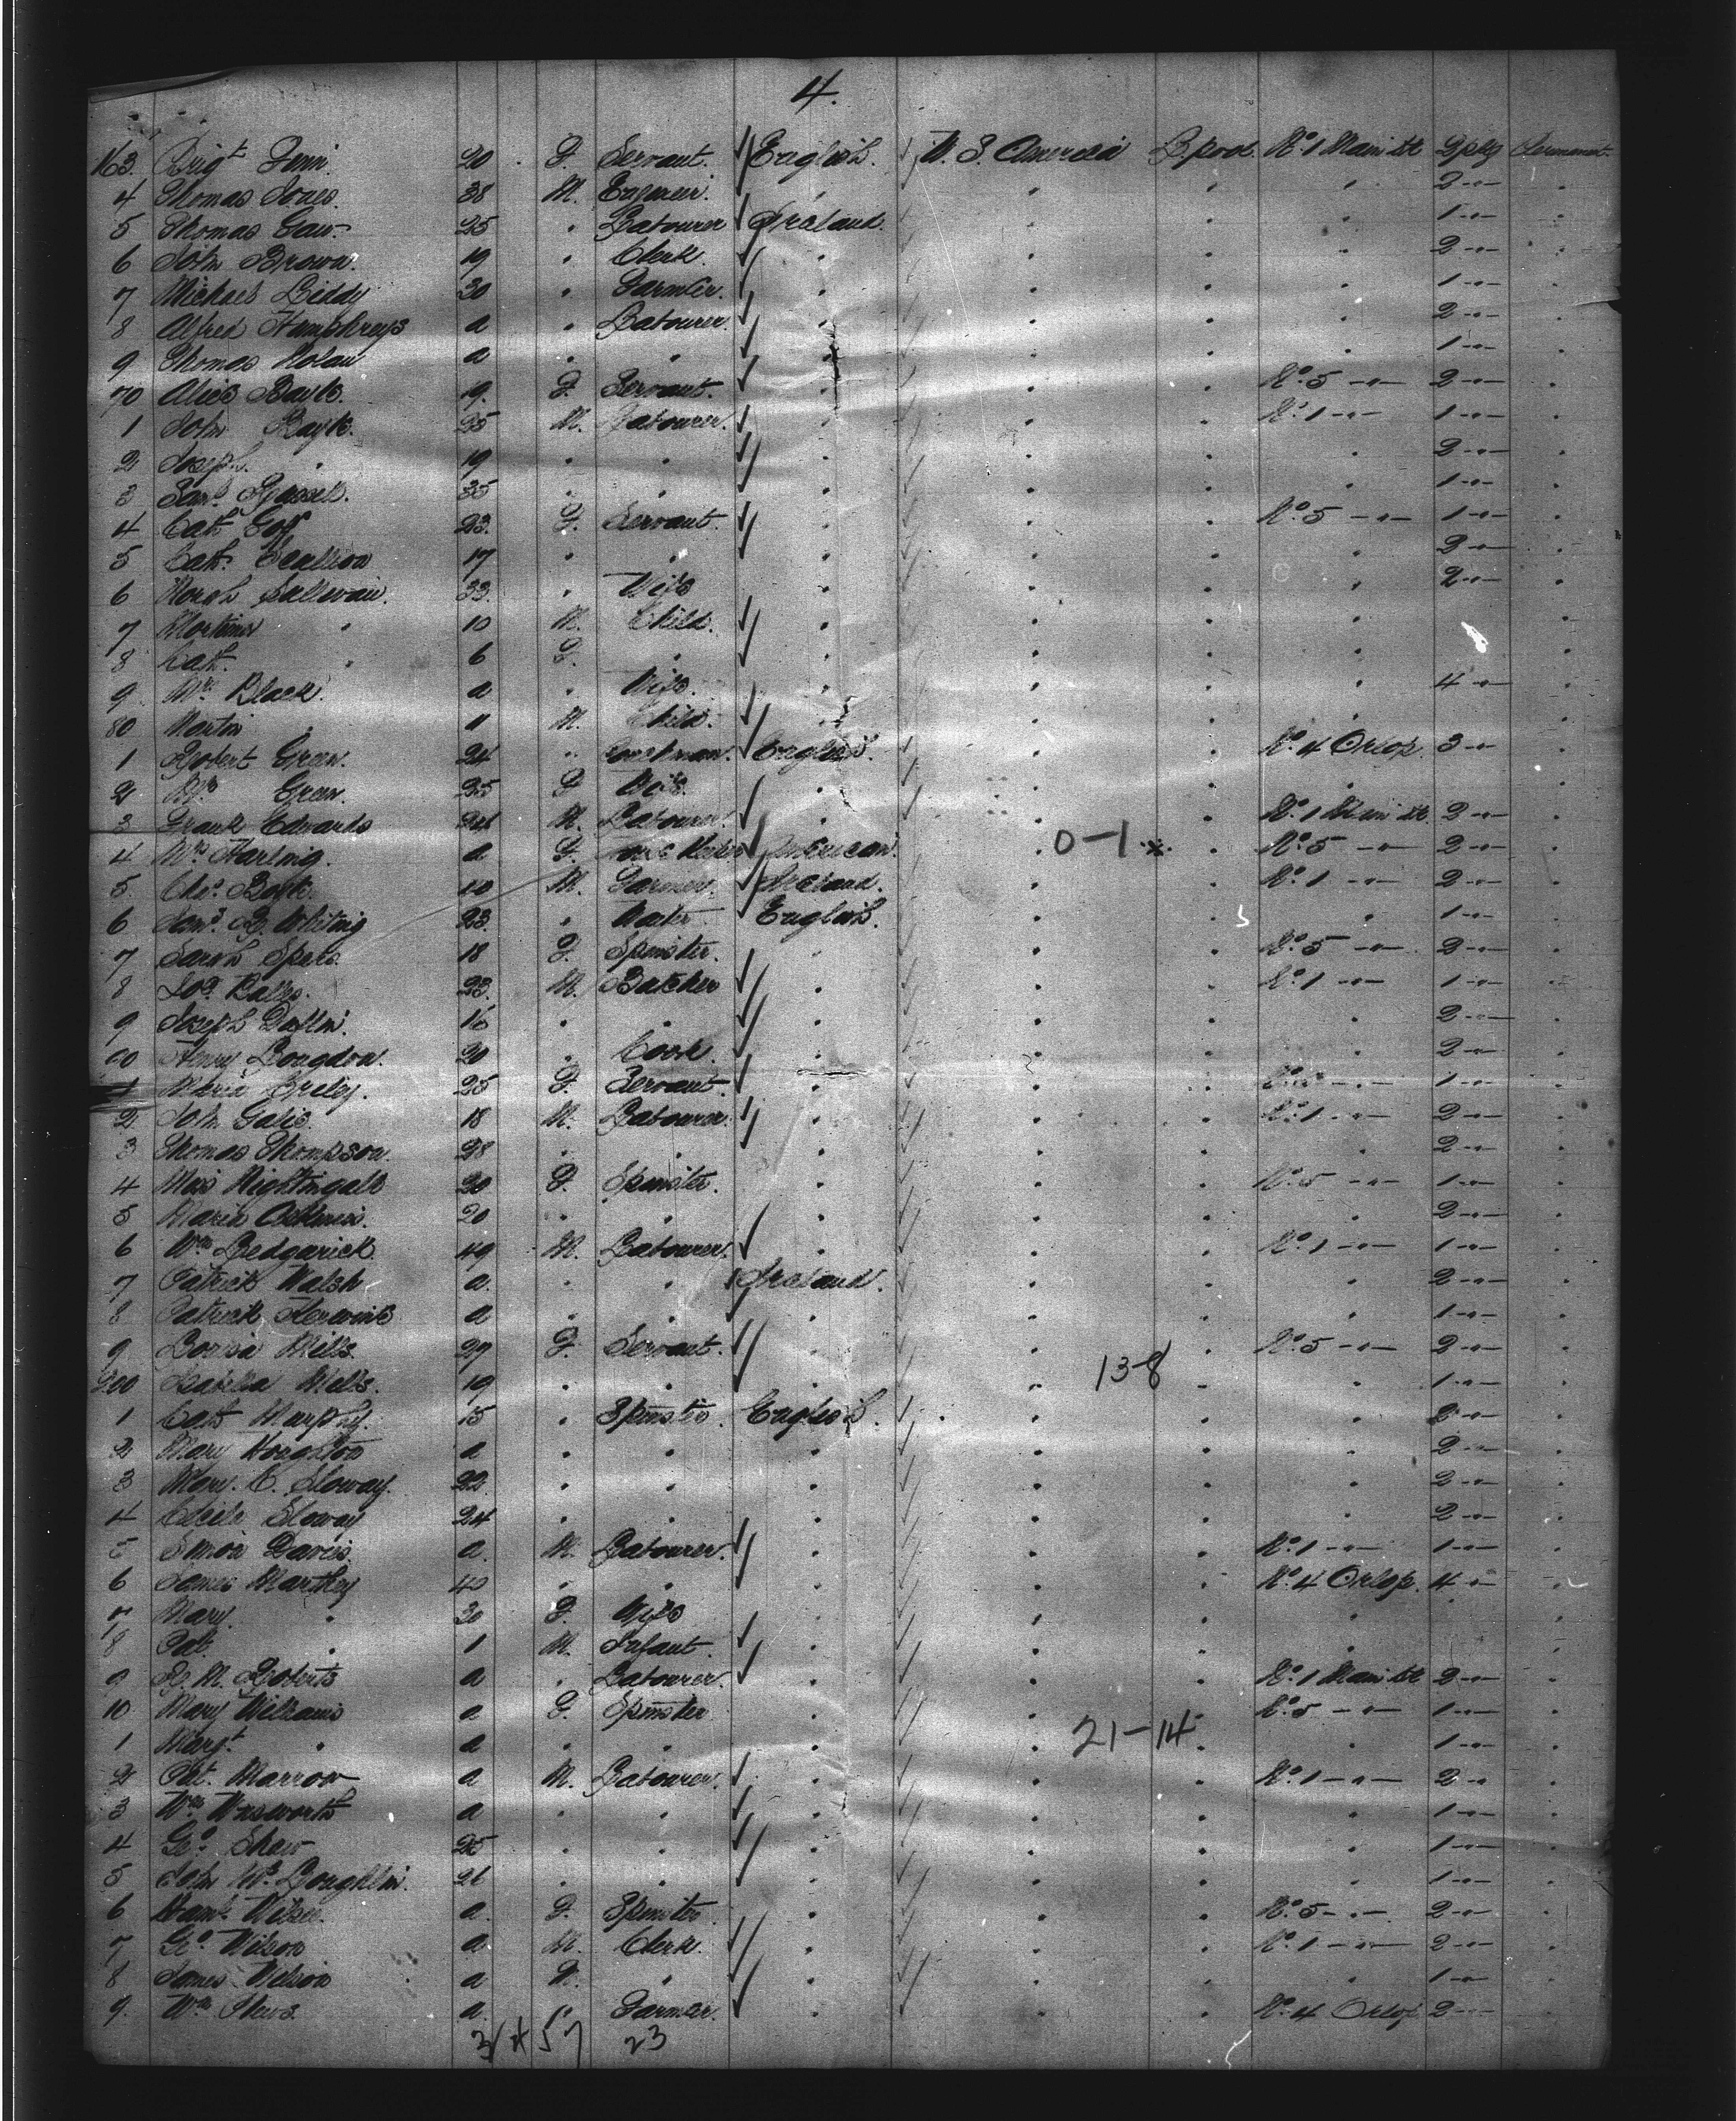 4.
163 Brigt Finn. 20 F. Servant. English. U. S. America L.pool. No 1 Main Dk 2 pkg Permanent.
4 Thomas Jones. 38 M. Engineer. " " " 2 -"- "
5 Thomas Gaw. 25 " Labourer Ireland. " " " 1 -"- "
6 John Brown. 19 " Clerk. " " " " 2 -"- "
7 Michael Liddy 30 " Farmer. " " " " 1 -"- "
8 Alfred Humphreys a " Labourer. " " " " 2 -"- "
9 Thomas Nolan a " " " " " " 1 -"- "
70 Alice Bayle. 19. F. Servant. " " " No. 5 -"- 2 -"- "
1 John Bayle. 25 M. Labourer. " " " No. 1 -"- 1 -"- "
2 Joseph " 19 " " " " " " 2 -"- "
3 Saml. Russell. 35 " " " " " " 1 -"- "
4 Cath Goff 23. F. Servant. " " " No. 5 -"- 1 -"- "
5 Cath. Scallion 17 " " " " " " 2 -"- "
6 Norah Sullivan. 33. " Wife " " " " 2 -"- "
7 Mortimer " 10 M. Child. " " " " "
8 Cath. " 6 F. " " " " " "
9 Mrs Black. a " Wife. " " " " 4 -"- "
80 Martin " 11 M. Child. " " " " "
1 Robert Green. 24 " Coachman. English. " " No. 4 Orlop. 3 -"- "
2 Mrs Green. 25 F Wife. " " " " "
3 Frank Edwards 24 M. Labourer. " " " No. 1 Main Dk. 2 -"- "
4 Mrs Harting. a F. Keeper American. 0-1 * " No. 5 -"- 2 -"- "
5 Chas. Boyle. 40 M. Farmer. Ireland. " " No. 1 -"- 2 -"- "
6 R. Whiting 23. " Waiter English. " " " 1 -"- "
7 Sarah Spers 18 F. Spinster. " " " No. 5 -"- 2 -"- "
8 Jos. Bales. 23. M. Butcher " " " No. 1 -"- 1 -"- "
9 Joseph 16 " " " " " " 2 -"- "
90 Henry Longdon. 20 " Cook. " " " " 2 -"- "
1 Maria 25 F. Servant. " " " 1 -"- "
2 John Gales. 18 M. Labourer. " " " No. 1 -"- 2 -"- "
3 Thomas Thompson. 28 " " " " " " 2 -"- "
4 Miss Nightingale 20 F. Spinster. " " " No. 5 -"- 1 -"- "
5 Maria 20 " " " " " " 2 -"- "
6 Wm Ledgarick. 49 M. Labourer. " " " No. 1 -"- 1 -"- "
7 Patrick Walsh a. " " Ireland. " " " 2 -"- "
8 Patrick a " " " " " " 1 -"- "
9 Louisa Mills. 27 F. Servant. " " " No. 5 -"- 2 -"- "
13-8
200 Isabella Mells. 19 " " " " " " 1 -"- "
1 Cath Murphy. 15 " Spinster. English. " " " 2 -"- "
2 Mary Houghton a " " " " " " 2 -"- "
3 Mary. C. Sloway. 22. " " " " " " 2 -"- "
4 Cecile Sloway 24 " " " " " " 2 -"- "
5 Simon Davies. a. M. Labourer. " " " No. 1 -"- 1 -"- "
6 James Marthey 40 " " " " " No. 4 Orlop. 4 -"- "
7 Mary " 30 F. Wife " " " " "
8 Pat. " 1 M. Infant. " " " " "
9 R. M. Roberts a " Labourer. " " " No. 1 Main Dk 2 -"- "
10 Mary Williams a F. Spinster " " " No. 5 -"- 1 -"- "
21-14
1 Margt. " a " " " " " " 1 -"- "
2 Pat. Marrow a M. Labourer. " " " No. 1 -"- 2 -"- "
3 Wm Unsworth a " " " " " " 1 -"- "
4 Geo. Shaw 25 " " " " " " 1 -"- "
5 John McLoughlin. 21 " " " " " " 1 -"- "
6 Hannh a. F. Spinster. " " " No. 5 -"- 2 -"- "
7 Geo. Wilson a. M. Clerk. " " " No. 1 -"- 2 -"- "
8 James Wilson a M. " " " " " 1 -"- "
9. Wm a. " Farmer. " " " No. 4 Orlop 2 -"- "
57 23